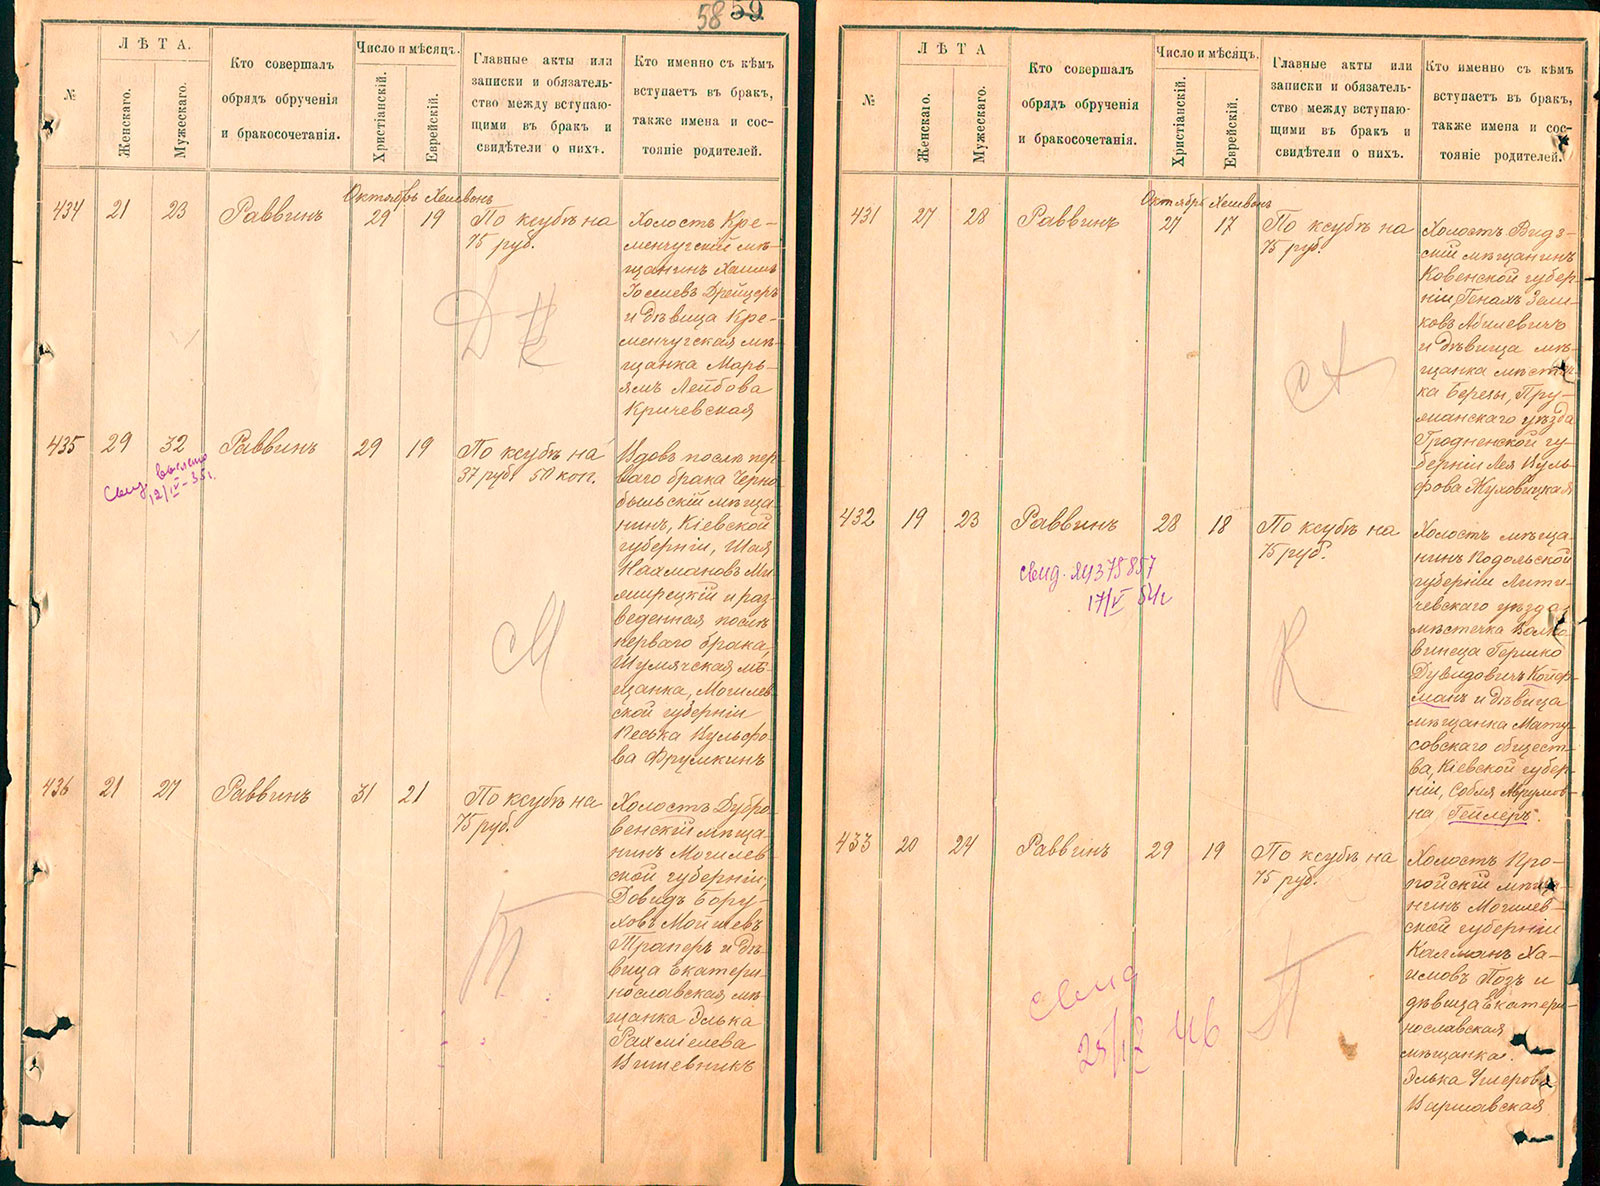 58 59
№
ЛѢТА.
Женскаго.
Мужескаго.
Кто совершалъ
обрядъ обрученія
и бракосочетанія.
Число и мѣсяцъ.
Христіанскій.
Еврейскій.
Главные акты или
записки и обязатель-
ство между вступаю-
щими въ бракъ и
свидѣтели о нихъ.
Кто именно съ кѣмъ
вступаетъ въ бракъ,
также имена и сос-
тояніе родителей.
Октябрь Хешвонъ
434 21 23 Раввинъ 29 19
По ксубѣ на
75 руб.
Холостъ Кре-
менчугскій мѣ-
щанинъ Хаимъ
Іоселевъ Дрейцеръ
и дѣвица Кре-
менчугская мѣ-
щанка Марь-
ямъ Лейбова
Кричевская
Д К
435 29 32 Раввинъ 29 19
По ксубѣ на
37 руб. 50 коп.
Вдовъ послѣ пер-
ваго брака Черно-
быльскій мѣща-
нинъ, Кіевской
губерніи, Шая
Нахмановъ Ми-
рецкій и раз-
веденная послѣ
перваго брака,
Шумячская мѣ-
щанка, Могилев-
ской губерніи
Песька Вульфо-
ва Фрумкинъ
Свид.
12/IV-35г.
М
436 21 27 Раввинъ 31 21
По ксубѣ на
75 руб.
Холостъ Дубро-
венскій мѣща-
нинъ Могилев-
ской губерніи,
Довидъ Бору-
ховъ Мойшевъ
Траперъ и дѣ-
вица Екатери-
нославская мѣ-
щанка Элька
Рахміелева
Вишевникъ
Т
№
ЛѢТА
Женскаго.
Мужескаго.
Кто совершалъ
обрядъ обрученія
и бракосочетанія.
Число и мѣсяцъ.
Христіанскій.
Еврейскій.
Главные акты или
записки и обязатель-
ство между вступаю-
щими въ бракъ и
свидѣтели о нихъ.
Кто именно съ кѣмъ
вступаетъ въ бракъ,
также имена и сос-
тояніе родителей.
Октябрь Хешвонъ
431 27 28 Раввинъ 27 17
По ксубѣ на
75 руб.
Холостъ Видз-
скій мѣщанинъ
Ковенской губер-
ніи Генахъ Зели-
ковъ Абилевичъ
и дѣвица мѣ-
щанка мѣстеч-
ка Березы, Пру-
жанскаго уѣзда
Гродненской гу-
берніи Лея Вуль-
фова Жуховицкая
432 19 23 Раввинъ 28 18
По ксубѣ на
75 руб.
Холостъ мѣща-
нинъ Подольской
губерніи Лити-
чевскаго уѣзда
мѣстечка Волко-
винеца Гершко
Дувидовичъ Койф-
манъ и дѣвица
мѣщанка Мату-
совскаго общест-
ва, Кіевской губер-
ніи, Собля Аврумов-
на Гейлеръ.
Свид. ЯЧ 375857
17/V 54г
К
433 20 24 Раввинъ 29 19
По ксубѣ на
75 руб.
Холостъ Про-
пойскій мѣща-
нинъ Могилев-
ской губерніи
Калманъ Ха-
имовъ Позъ и
дѣвица Екатери-
нославская
мѣщанка
Элька
Варшавская
Свид
46
П